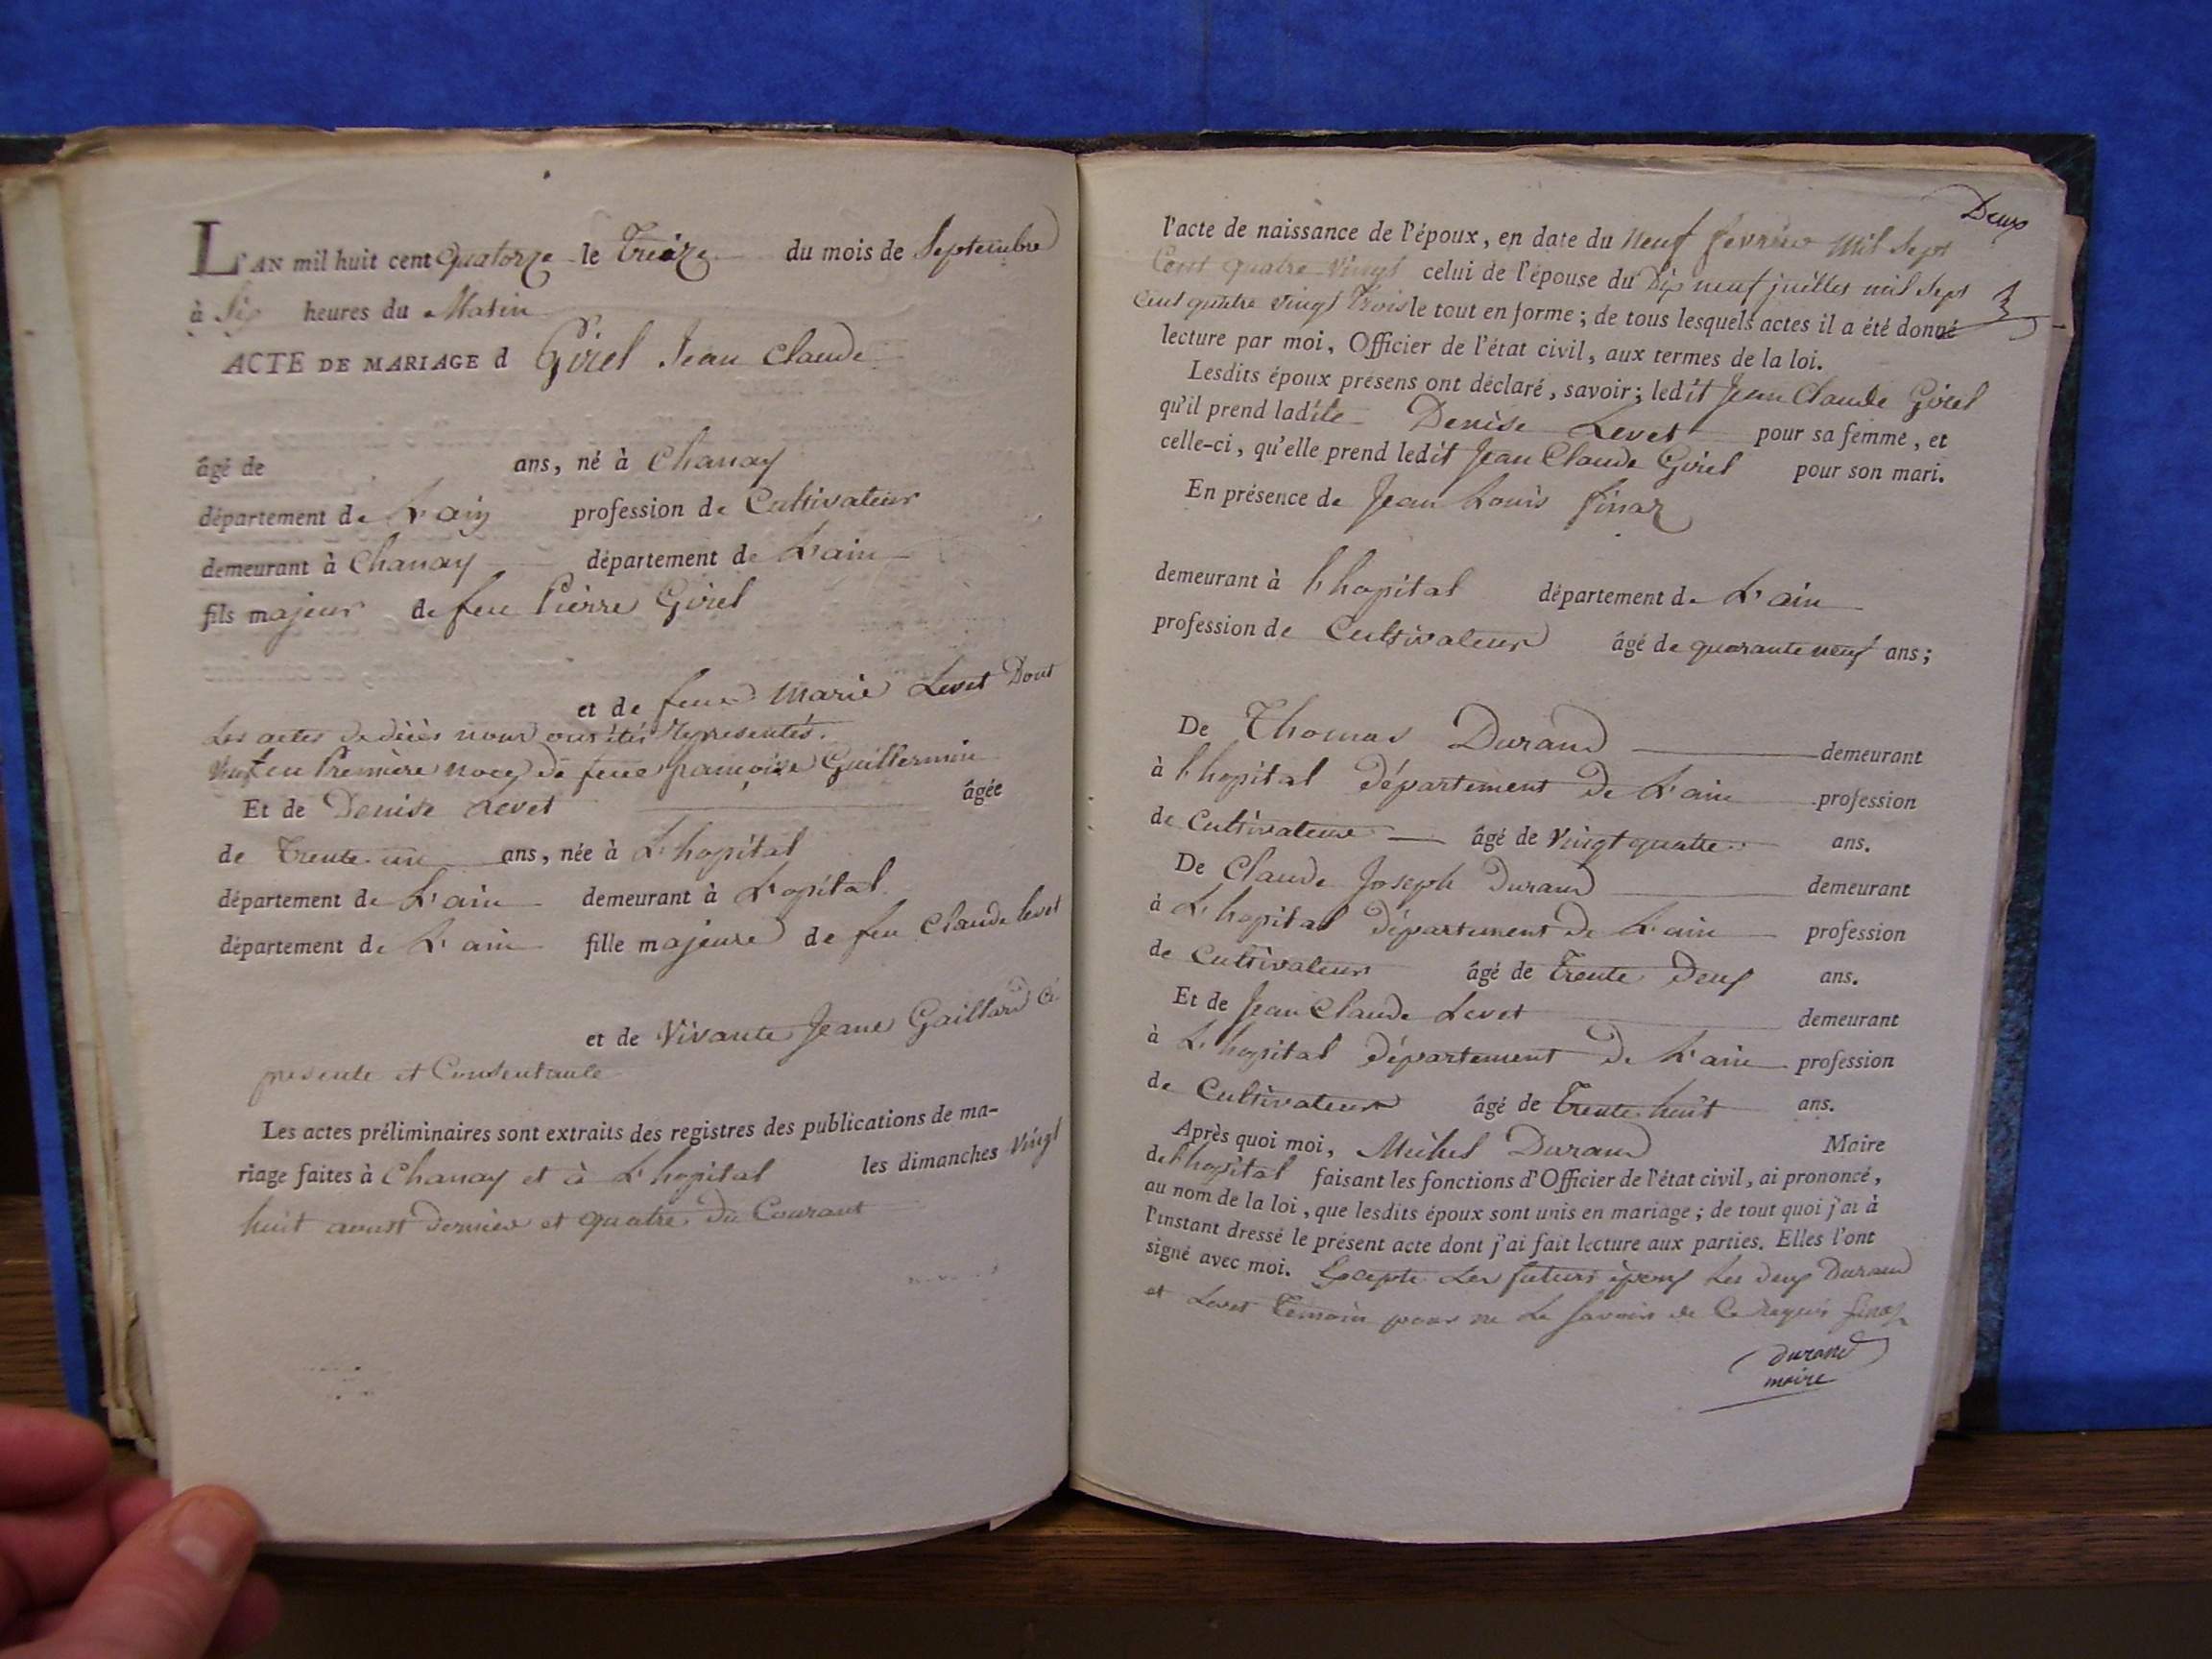 L'AN mil huit cent quatorze le treize du mois de Septembre
à Six heures du Matin
ACTE DE MARIAGE d Girel Jean Claude
âgé de ans, né à Chanay
département de L'ain profession de Cultivateur
demeurant à Chanay département de L'ain
fils majeur de feu Pierre Girel
et de feue Marie Levet Dont
Les actes de décès nous ont étés représentés.
veuf en Première noces de feue françoise Guillermin
Et de Denise Levet âgée
de Trente un ans, née à L'hopital
département de L'ain demeurant à L'opital
département de L'ain fille majeure de feu Claude levet
et de Vivante Jeane Gaillard Ci
presente et Consentante
Les actes préliminaires sont extraits des registres des publications de ma-
riage faites à Chanay et à L'hopital les dimanches Vingt
huit aoust dernier et quatre du Courant
Deux
l'acte de naissance de l'époux, en date du Neuf fevrier Mil Sept
Cent quatre Vingt celui de l'épouse du Dix neuf juillet mil Sept
Cent quatre vingt Trois le tout en forme ; de tous lesquels actes il a été donné
lecture par moi, Officier de l'état civil, aux termes de la loi.
Lesdits époux présens ont déclaré, savoir ; ledit Jean Claude Girel
qu'il prend ladite Denise Levet pour sa femme, et
celle-ci, qu'elle prend ledit Jean Claude Girel pour son mari.
En présence de Jean Louis finaz
demeurant à l'hopital département de L'ain
profession de Cultivateur âgé de quarante neuf ans ;
De Thomas Durand demeurant
à l'hopital département De L'ain profession
de Cultivateur âgé de Vingt quatre ans.
De Claude Joseph Durand demeurant
à L'hopital département De L'ain profession
de Cultivateur âgé de Trente Deux ans.
Et de Jean Claude Levet demeurant
à L'hopital département De L'ain profession
de Cultivateur âgé de Trente huit ans.
Après quoi moi, Michel Durand Maire
de l'hopital faisant les fonctions d'Officier de l'état civil, ai prononcé,
au nom de la loi, que lesdits époux sont unis en mariage ; de tout quoi j'ai à
l'instant dressé le présent acte dont j'ai fait lecture aux parties. Elles l'ont
signé avec moi. Excepté Les futurs époux Les deux Durand
et Levet Temoin pour ne Le Savoir de Ce requis finaz
Durand
maire